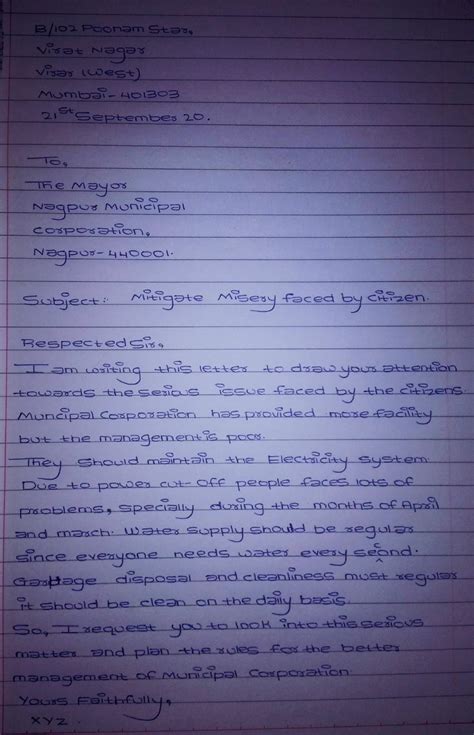 B/102 Poonam Star,
Virat Nagar
Virar (west)
Mumbai-401303
21st September 20.
To,
The Mayor
Nagpur Municipal
Corporation,
Nagpur-440001.
Subject: Mitigate Misery faced by citizen.
Respected Sir,
I am writing this letter to draw your attention
towards the serious issue faced by the citizens
Muncipal Corporation has provided more facility
but the management is poor.
They should maintain the Electricity system.
Due to power cut-off people faces lots of
problems, specially during the months of April
and march. Water supply should be regular
since everyone needs water every second.
Garbage disposal and cleanliness must regular
it should be clean on the daily basis.
So, I request you to look into this serious
matter and plan the rules for the better
management of Municipal Corporation.
Yours Faithfully,
XYZ